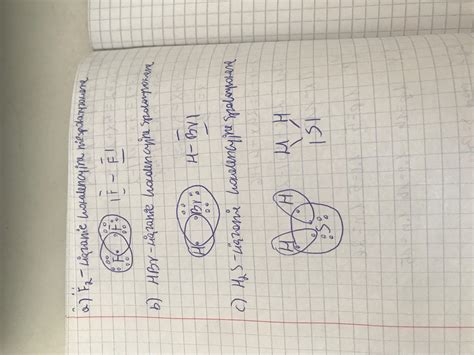 a) F₂ - wiązanie kowalencyjne niespolaryzowane
F F |F̅ - F̅|
b) HBr - wiązanie kowalencyjne spolaryzowane
H Br H - B̅r̅|
c) H₂S - wiązanie kowalencyjne spolaryzowane
H H H H
S |S|